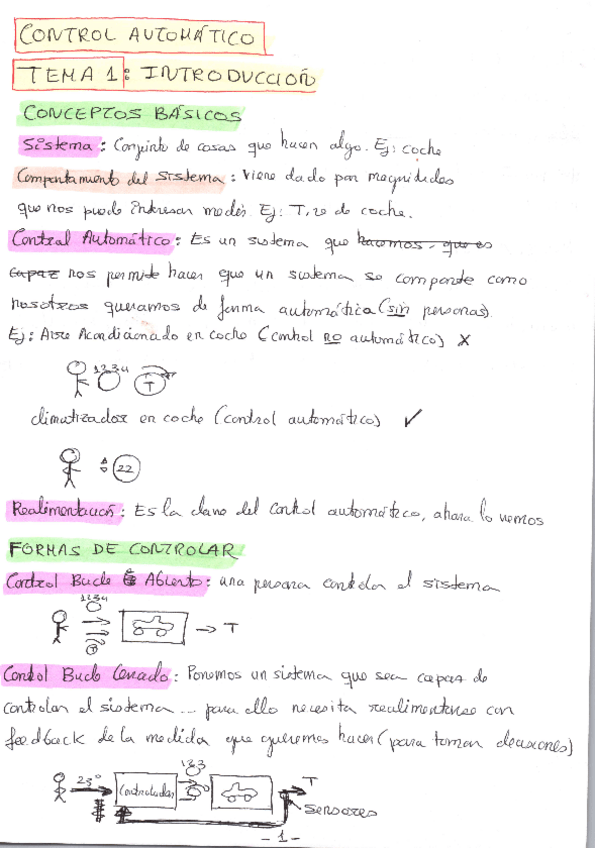 CONTROL AUTOMÁTICO
TEMA 1: INTRODUCCIÓN
CONCEPTOS BÁSICOS
Sistema: Conjunto de cosas que hacen algo. Ej: coche
Comportamiento del sistema: Viene dado por magnitudes
que nos puede interesar medir. Ej: T, v de coche.
Control Automático: Es un sistema que hacemos, que es
capaz nos permite hacer que un sistema se comporte como
nosotros queramos de forma automática (sin personas).
Ej: Aire Acondicionado en coche (control no automático) X
1 2 3 4
T
climatizador en coche (control automático) ✓
22
Realimentación: Es la clave del control automático, ahora lo vemos
FORMAS DE CONTROLAR
Control Bucle Abierto: una persona controla el sistema
1 2 3 4
T
→ T
Control Bucle Cerrado: Ponemos un sistema que sea capaz de
controlar el sistema ... para ello necesita realimentarse con
feedback de la medida que queremos hacer (para tomar decisiones)
1 2 3
23° Controlador T
sensores
- 1 -